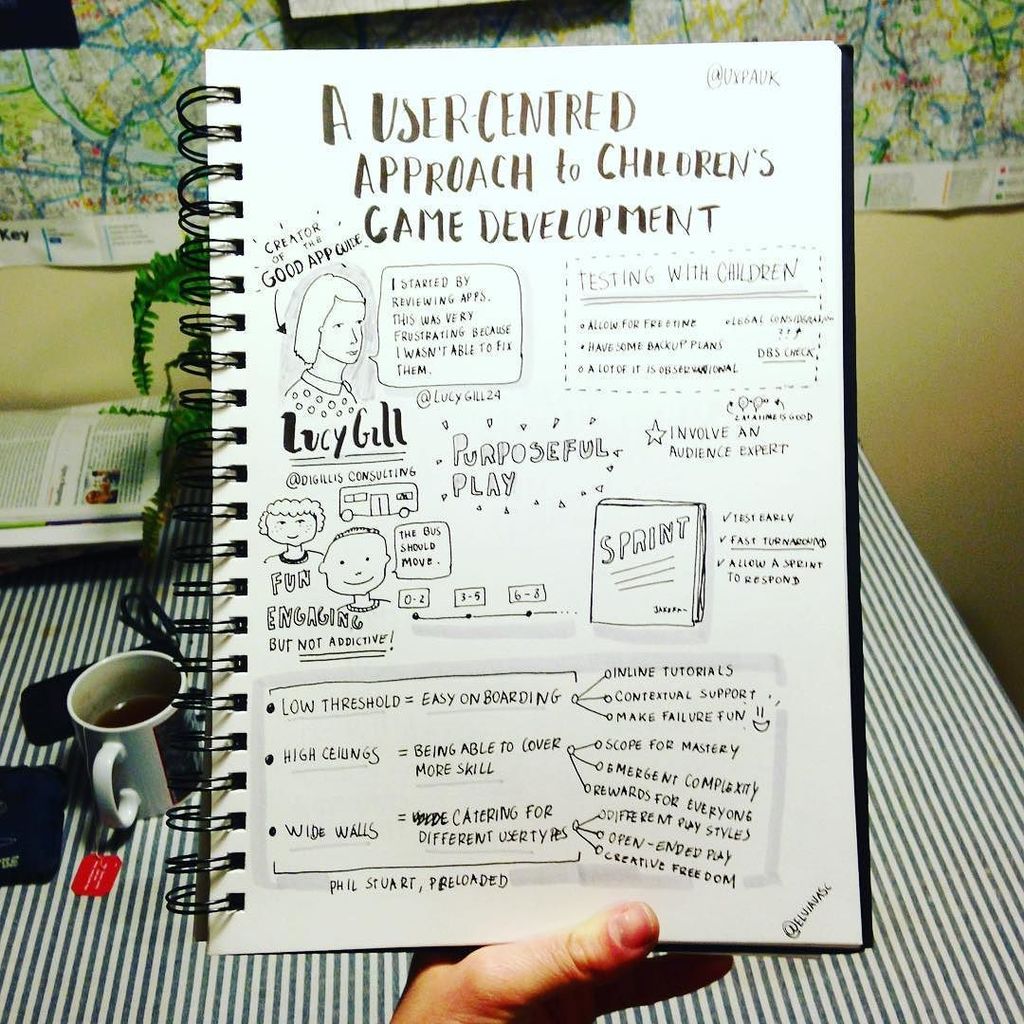 @UXPAUK
A USER-CENTRED
APPROACH to CHILDREN'S
GAME DEVELOPMENT
CREATOR
OF THE
GOOD APP GUIDE
I STARTED BY
REVIEWING APPS.
THIS WAS VERY
FRUSTRATING BECAUSE
I WASN'T ABLE TO FIX
THEM.
@LUCYGILL24
LUCY Gill
@DIGILLIS CONSULTING
TESTING WITH CHILDREN
ALLOW FOR FREE TIME
HAVE SOME BACKUP PLANS
A LOT OF IT IS OBSERVATIONAL
LEGAL CONSIDERATION
??↑
DBS CHECK
2 AT A TIME IS GOOD
INVOLVE AN
AUDIENCE EXPERT
PURPOSEFUL
PLAY
THE BUS
SHOULD
MOVE.
FUN
ENGAGING
BUT NOT ADDICTIVE!
0-2
3-5
6-8
SPRINT
✓ TEST EARLY
✓ FAST TURNAROUND
✓ ALLOW A SPRINT
TO RESPOND
• LOW THRESHOLD = EASY ONBOARDING
INLINE TUTORIALS
CONTEXTUAL SUPPORT
MAKE FAILURE FUN
• HIGH CEILINGS = BEING ABLE TO COVER
MORE SKILL
SCOPE FOR MASTERY
EMERGENT COMPLEXITY
REWARDS FOR EVERYONE
• WIDE WALLS = CATERING FOR
DIFFERENT USERTYPES
DIFFERENT PLAY STYLES
OPEN-ENDED PLAY
CREATIVE FREEDOM
PHIL STUART, PRELOADED
@ELVIAVASC
Key